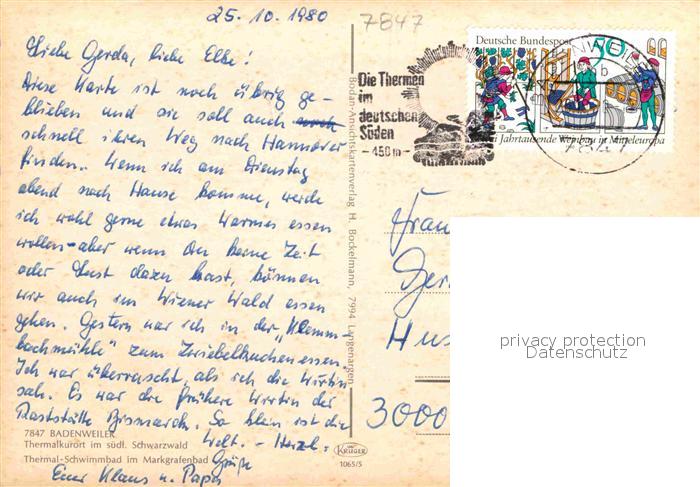 25. 10. 1980
7847
Liebe Gerda, liebe Elke!
Diese Karte ist noch übrig ge-
blieben und sie soll auch
schnell ihren Weg nach Hannover
finden. Wenn ich am Dienstag
abend nach Hause komme, werde
ich wohl gerne etwas Warmes essen
wollen - aber wenn Du keine Zeit
oder Lust dazu hast, können
wir auch im Wiener Wald essen
gehen. Gestern war ich in der „Klemm-
bachmühle" zum Zwiebelkuchenessen.
Ich war überrascht, als ich die Wirtin
sah. Es war die frühere Wirtin der
Raststätte Bismarck. So klein ist die
Welt. - Herzl.
Grüße
Euer Klaus u. Papa
7847 BADENWEILER
Thermalkurort im südl. Schwarzwald
Thermal-Schwimmbad im Markgrafenbad
Bodan-Ansichtskartenverlag H. Bockelmann, 7994 Langenargen
KRÜGER
1065/5
Die Thermen
im
deutschen
Süden
- 450 m -
Deutsche Bundespost 50
Jahrtausende Weinbau in Mitteleuropa
b
Frau
3000
privacy protection
Datenschutz